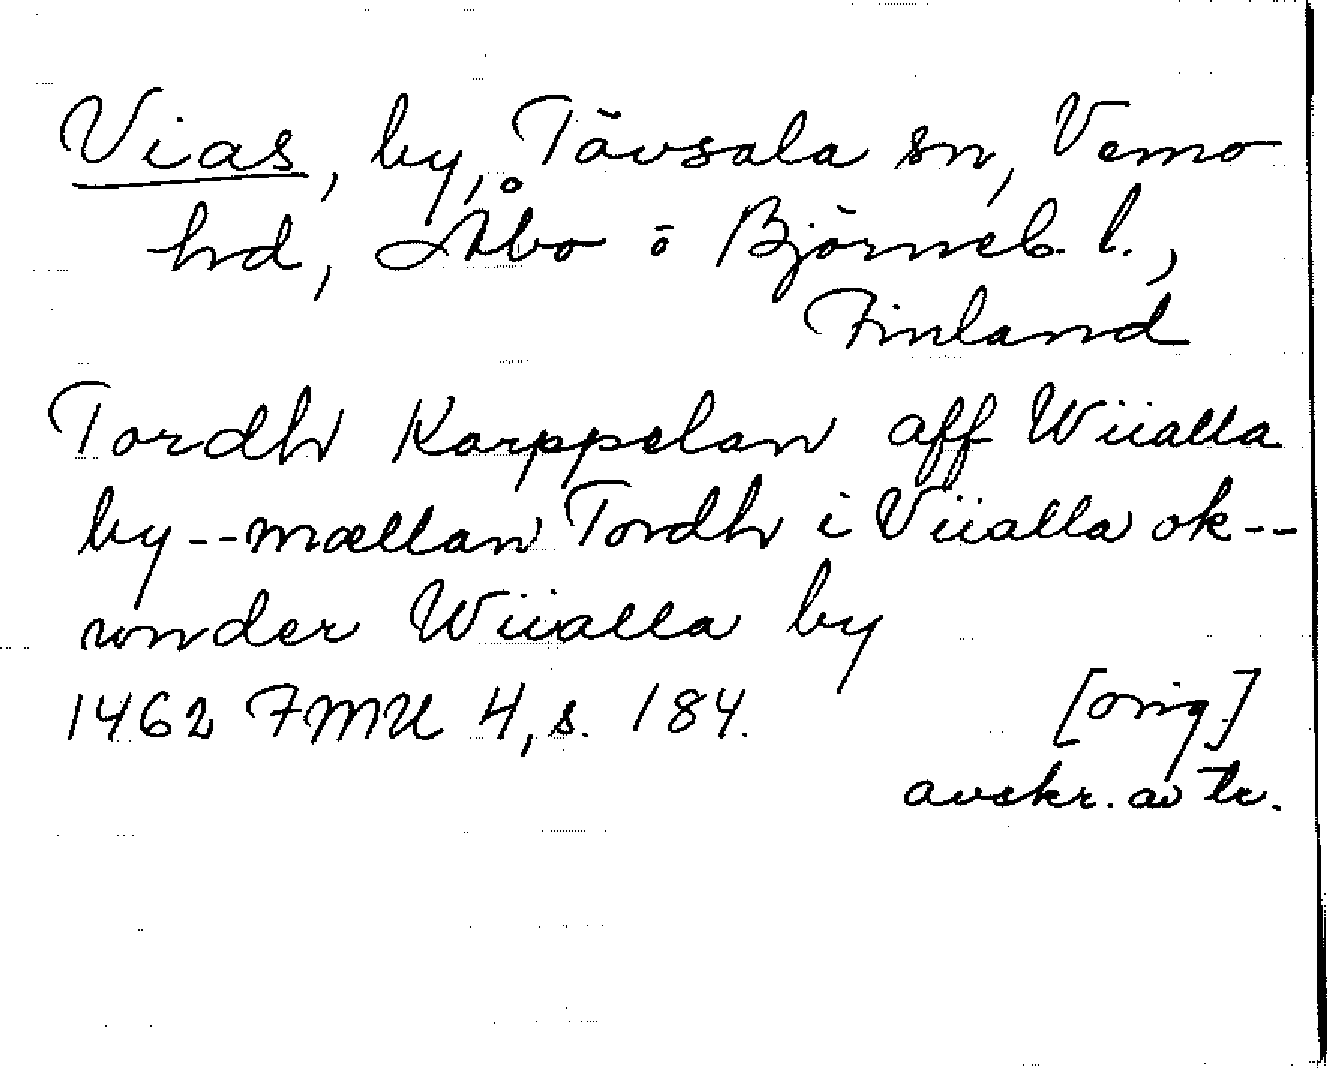 Vias, by, Tövsala sn, Vemo
hd, Åbo o Björneb. l.,
Finland
Tordh Karppelan aff Wiialla
by--mællan Tordh i Viialla ok--
wnder Wiialla by
1462 FMU 4, s. 184. [orig.]
avskr. av tr.